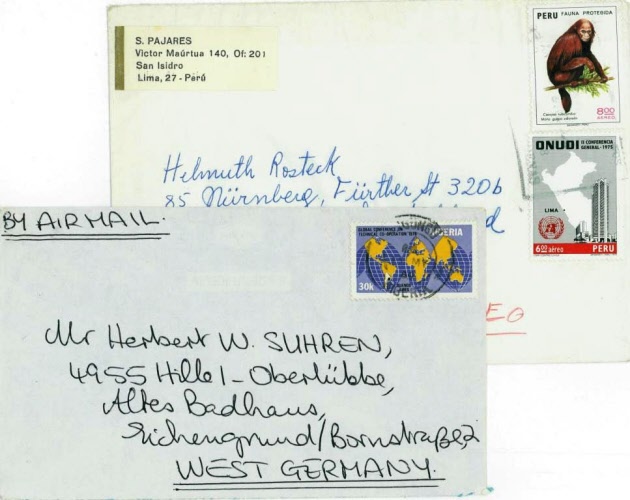 S. PAJARES
Victor Maúrtua 140, Of: 201
San Isidro
Lima, 27 - Perú
PERU FAUNA PROTEGIDA
8.00
AEREO
ONUDI II CONFERENCIA
GENERAL - 1975
LIMA
6.00 aéreo PERU
Helmuth Rosteck
85 Nürnberg, Fürther St 320b
EO
BY AIR MAIL.
GLOBAL CONFERENCE ON
TECHNICAL CO-OPERATION 1978
NIGERIA
30k
Mr Herbert W. SUHREN,
4955 Hille 1 - Oberlübbe,
Altes Badhaus,
Eichengrund/Bornstraße 2
WEST GERMANY.